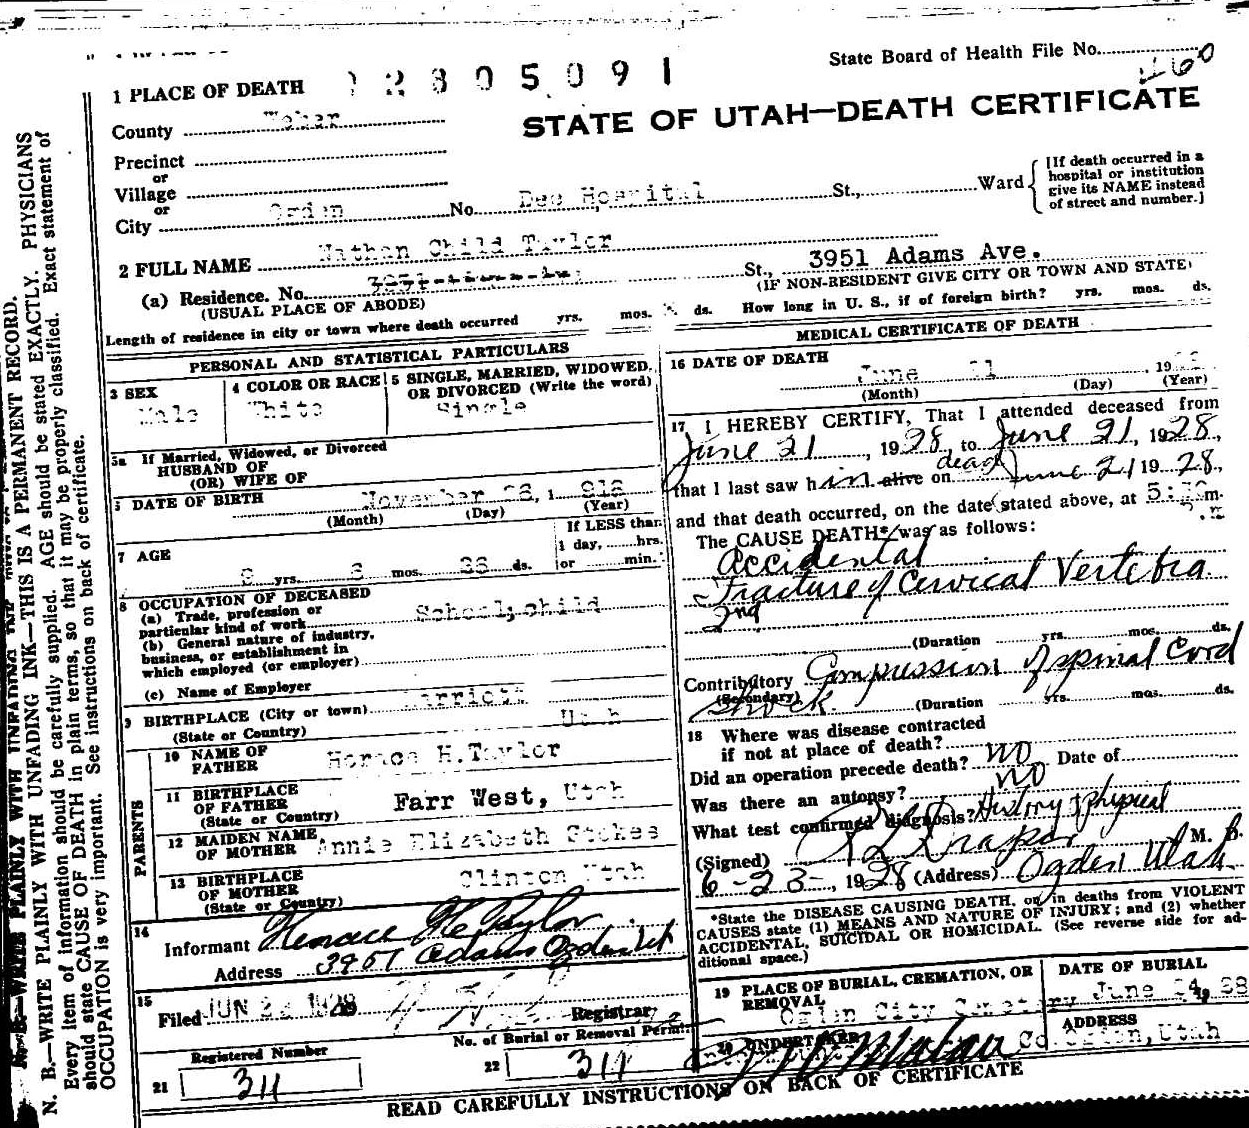 State Board of Health File No.
460
1 PLACE OF DEATH
2805091
STATE OF UTAH—DEATH CERTIFICATE
County Weber
Precinct
or
Village
or
City Ogden No. Dee Hospital St., Ward
[If death occurred in a
hospital or institution
give its NAME instead
of street and number.]
2 FULL NAME Nathan Child Taylor
(a) Residence. No. St., 3951 Adams Ave.
(USUAL PLACE OF ABODE)
(IF NON-RESIDENT GIVE CITY OR TOWN AND STATE)
Length of residence in city or town where death occurred yrs. mos. ds. How long in U. S., if of foreign birth? yrs. mos. ds.
PERSONAL AND STATISTICAL PARTICULARS
3 SEX
Male
4 COLOR OR RACE
White
5 SINGLE, MARRIED, WIDOWED,
OR DIVORCED (Write the word)
Single
5a If Married, Widowed, or Divorced
HUSBAND OF
(OR) WIFE OF
DATE OF BIRTH November
(Month) (Day) (Year)
7 AGE
yrs. mos. ds.
If LESS than
1 day, hrs.
or min.
8 OCCUPATION OF DECEASED
(a) Trade, profession or
particular kind of work School, child
(b) General nature of industry,
business, or establishment in
which employed (or employer)
(c) Name of Employer
9 BIRTHPLACE (City or town) Marriott
(State or Country) Utah
PARENTS
10 NAME OF
FATHER Horace H. Taylor
11 BIRTHPLACE
OF FATHER Farr West, Utah
(State or Country)
12 MAIDEN NAME
OF MOTHER Annie Elizabeth Stokes
13 BIRTHPLACE
OF MOTHER Clinton Utah
(State or Country)
14
Informant Horace H Taylor
Address 3951 Adams Ogden Ut
15
Filed JUN 1928 Registrar
No. of Burial or Removal Permit
Registered Number
21 311
22 311
MEDICAL CERTIFICATE OF DEATH
16 DATE OF DEATH
June 21, 19
(Month) (Day) (Year)
17 I HEREBY CERTIFY, That I attended deceased from
June 21, 1928, to June 21, 1928,
that I last saw h im alive dead on June 21 1928,
and that death occurred, on the date stated above, at 5: m.
The CAUSE DEATH* was as follows:
Accidental
Fracture of Cervical Vertebra
2nd
(Duration yrs. mos. ds.
Contributory Compression of spinal Cord
(Secondary)
Shock (Duration yrs. mos. ds.
18 Where was disease contracted
if not at place of death?
Did an operation precede death? no Date of
Was there an autopsy? no
What test confirmed diagnosis? History & physical
(Signed) Draper M. D.
6-23-, 1928 (Address) Ogden Utah
*State the DISEASE CAUSING DEATH, or in deaths from VIOLENT
CAUSES state (1) MEANS AND NATURE OF INJURY; and (2) whether
ACCIDENTAL, SUICIDAL OR HOMICIDAL. (See reverse side for ad-
ditional space.)
19 PLACE OF BURIAL, CREMATION, OR
REMOVAL
Ogden City Cemetery
DATE OF BURIAL
June 24,
20 UNDERTAKER
ADDRESS
Co. Ogden, Utah
READ CAREFULLY INSTRUCTIONS ON BACK OF CERTIFICATE
N. B.—WRITE PLAINLY WITH UNFADING INK—THIS IS A PERMANENT RECORD.
Every item of information should be carefully supplied. AGE should be stated EXACTLY. PHYSICIANS
should state CAUSE OF DEATH in plain terms, so that it may be properly classified. Exact statement of
OCCUPATION is very important. See instructions on back of certificate.